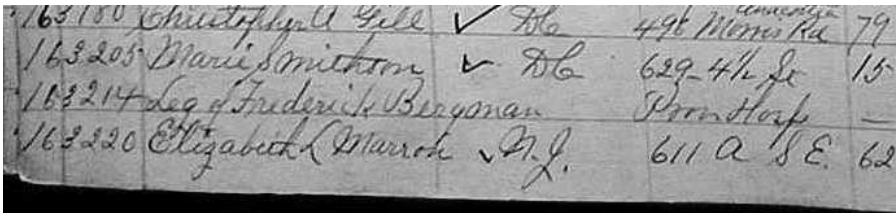 163180 Christopher A Gill ✓ DC 496 Morris Rd Anacostia 79
163205 Marie Smithson ✓ DC 629-4½ St 15
163214 Leg of Frederick Bergman Prov Hosp —
163220 Elizabeth L Marron ✓ N.J. 611 A S E. 62